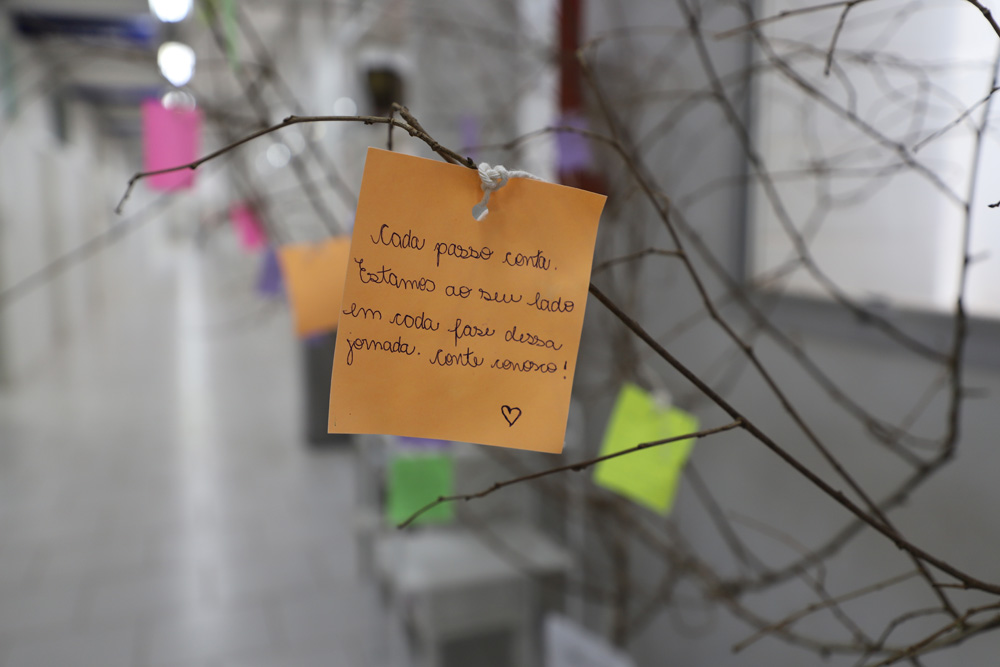 Cada passo conta.
Estamos ao seu lado
em cada fase dessa
jornada. Conte conosco!